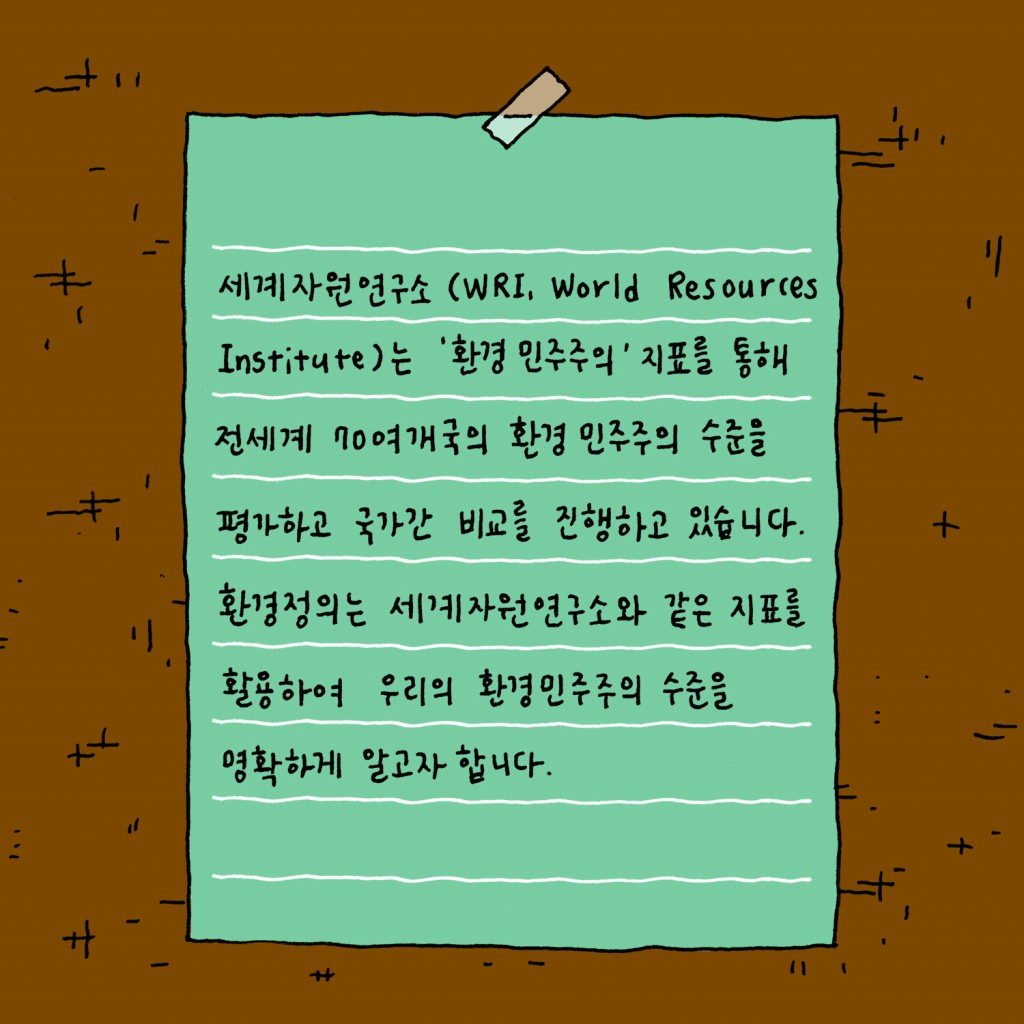 세계자원연구소 (WRI, World Resources
Institute)는 '환경 민주주의' 지표를 통해
전세계 70여개국의 환경 민주주의 수준을
평가하고 국가간 비교를 진행하고 있습니다.
환경정의는 세계자원연구소와 같은 지표를
활용하여 우리의 환경민주주의 수준을
명확하게 알고자 합니다.